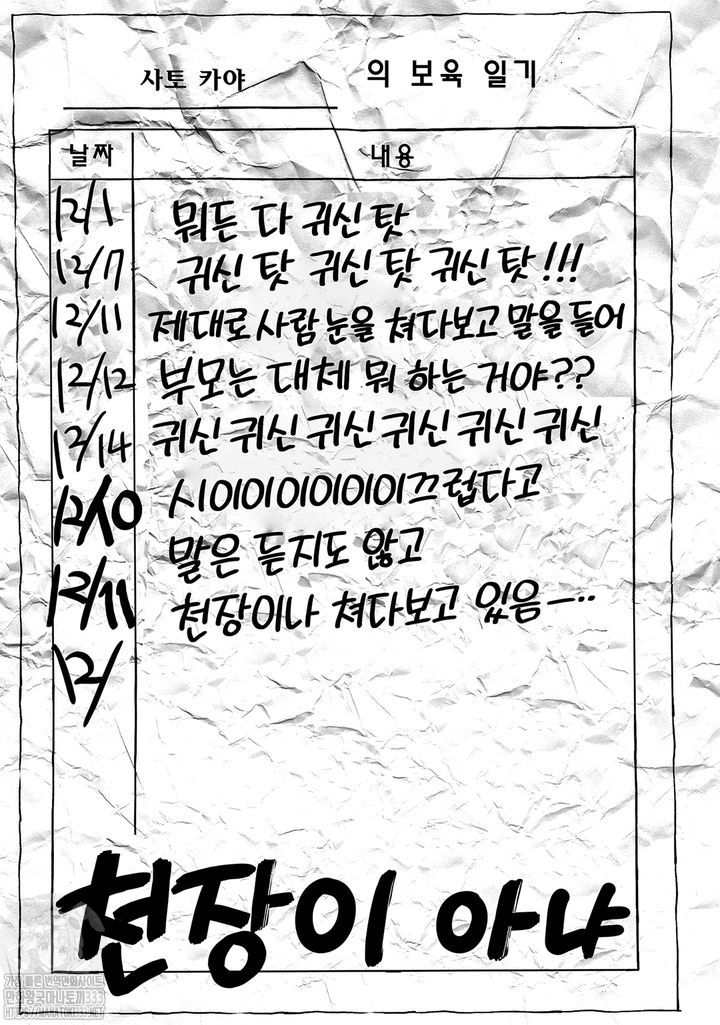 사토 카야 의 보육 일기
날짜 내용
12/1 뭐든 다 귀신 탓
12/7 귀신 탓 귀신 탓 귀신 탓!!!
12/11 제대로 사람 눈을 쳐다보고 말을 들어
12/12 부모는 대체 뭐 하는 거야??
12/14 귀신 귀신 귀신 귀신 귀신 귀신
12/10 시이이이이이이끄럽다고
12/11 말은 듣지도 않고
12/ 천장이나 쳐다보고 있음ㅡ··
천장이 아냐
가장 빠른 번역만화사이트
만화왕국마나토끼333
HTTPS://MANATOKI333.COM